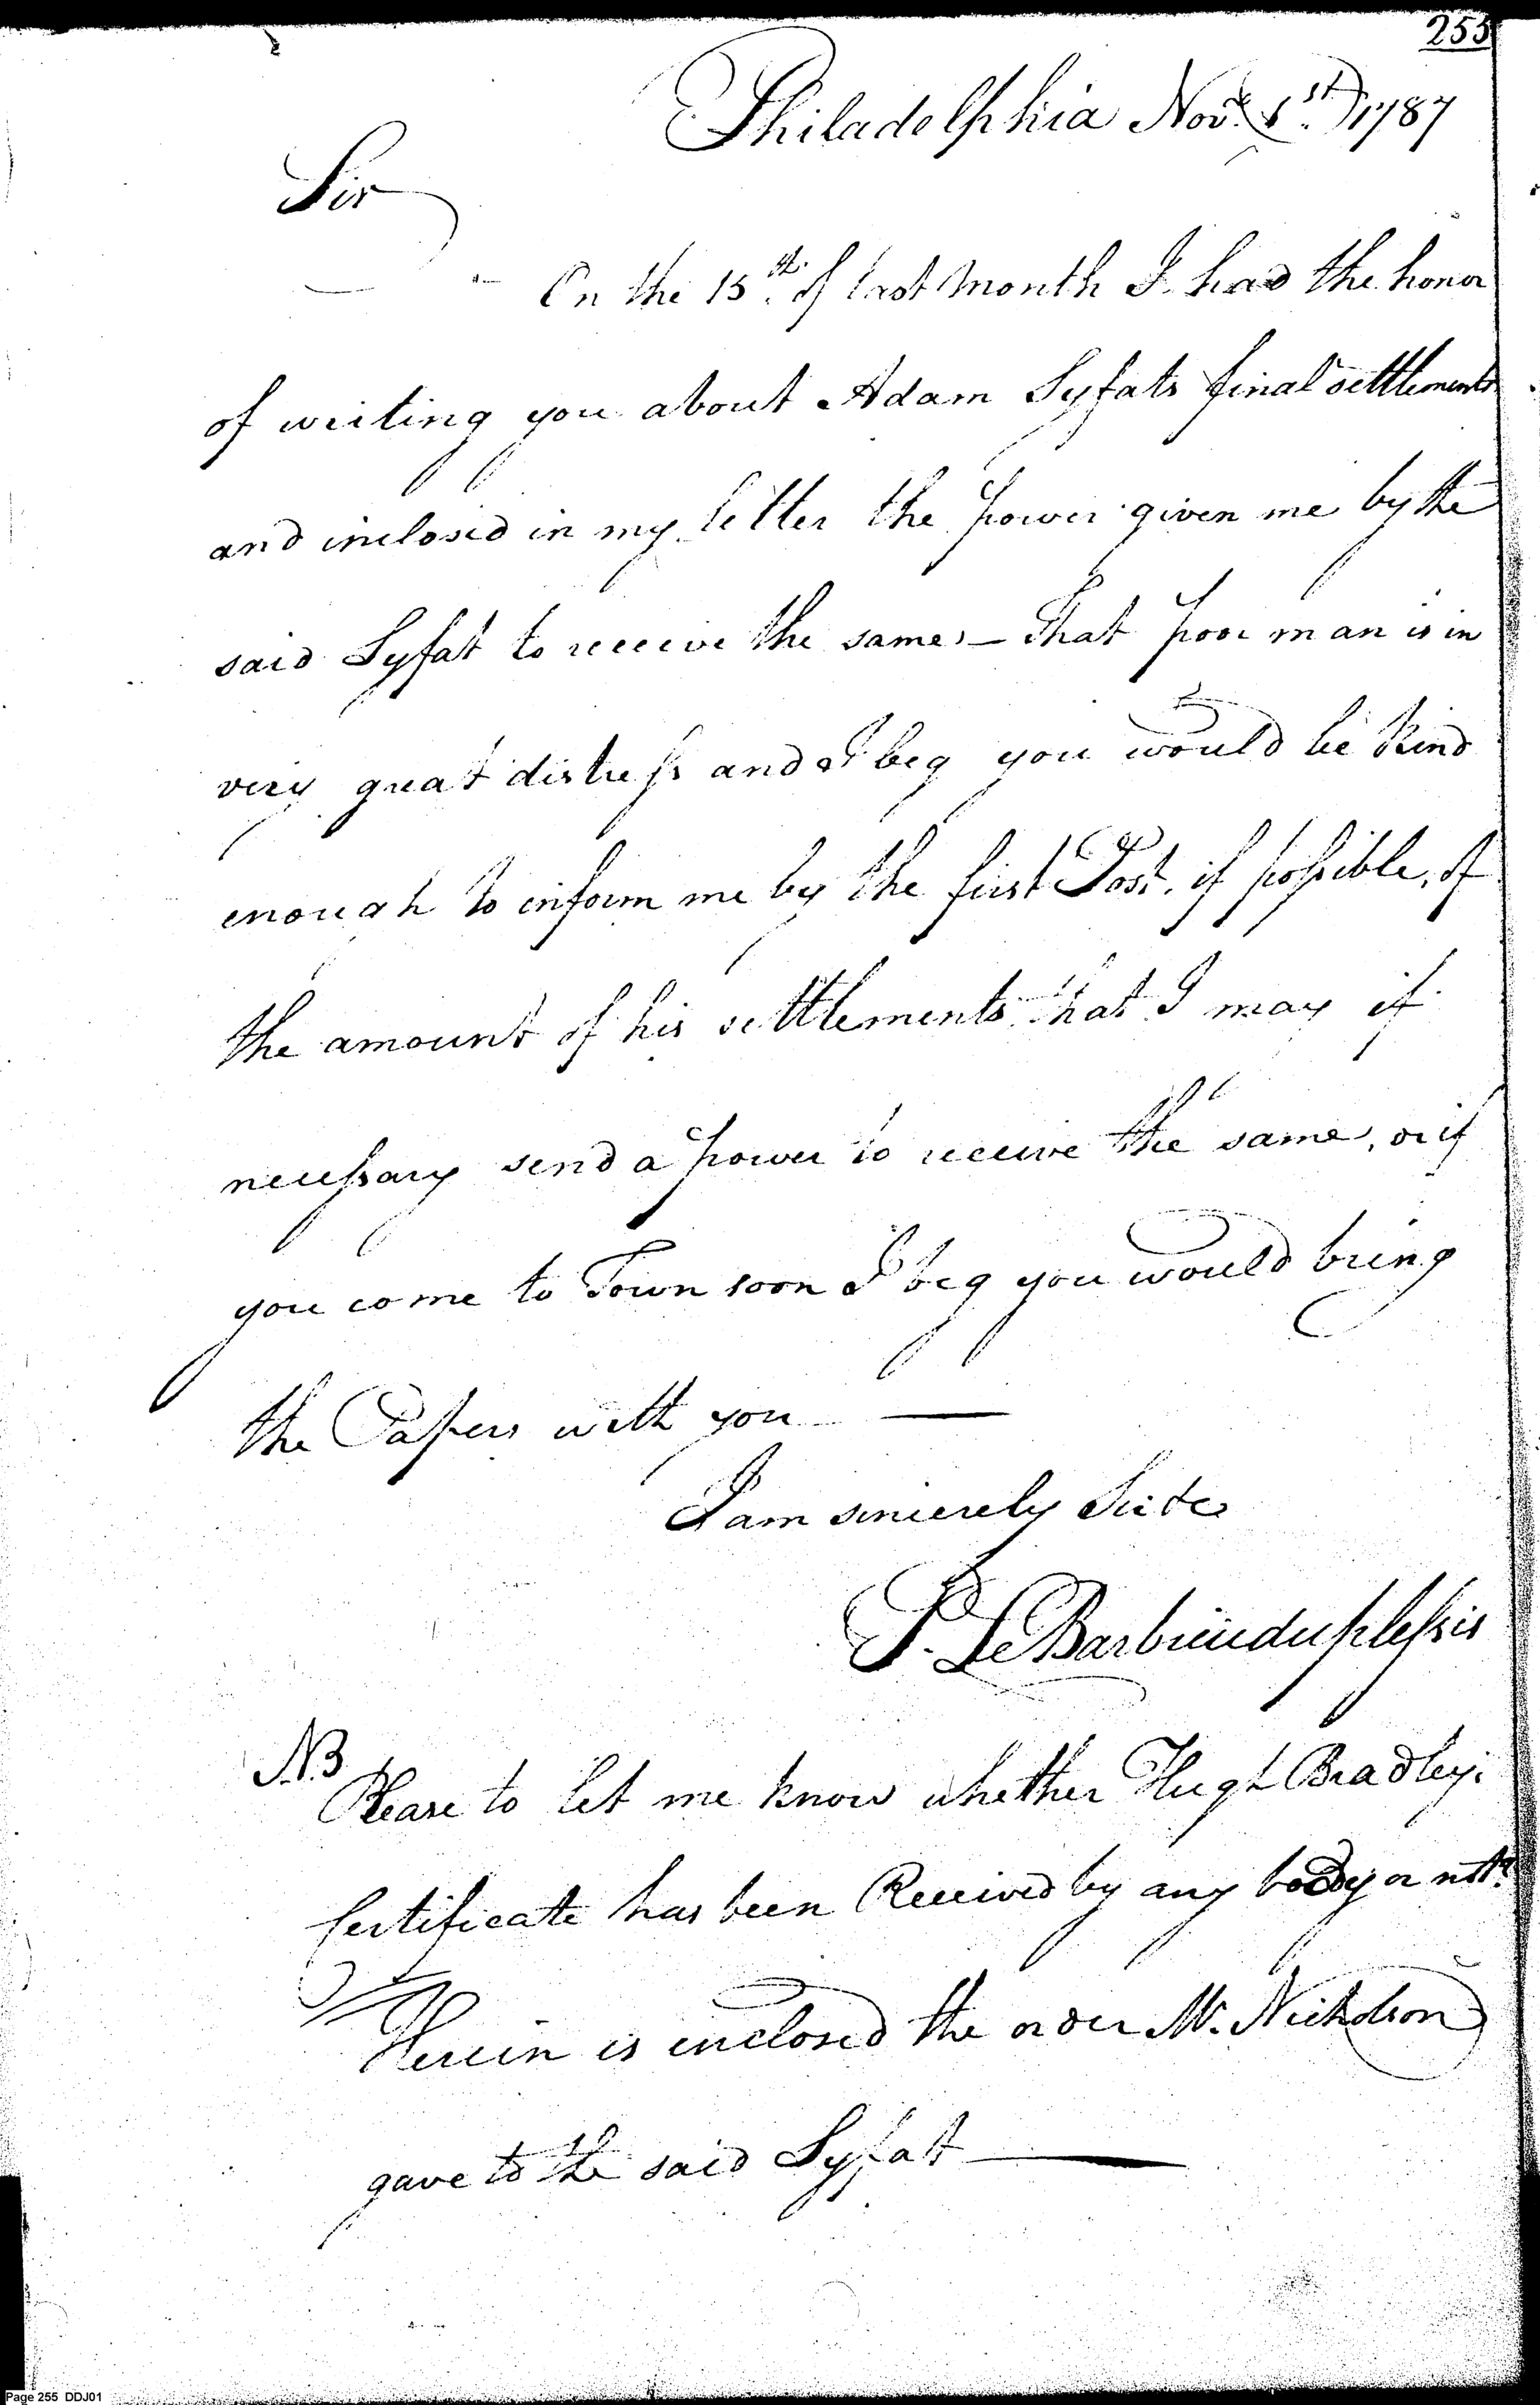 255
Philadelphia Novr. 1st. 1787
Sir
On the 15th. of last Month I had the honor
of writing you about Adam Syfats final settlements
and inclosed in my letter the power given me by the
said Syfat to receive the same, — That poor man is in
very great distress and I beg you would be Kind
enough to inform me by the first Post, if possible, of
the amount of his settlements that I may if
necessary send a power to receive the same, or if
you come to Town soon I beg you would bring
the Papers with you —
I am sincerely Sir &c
P. Le Barbier duplessis
N.B
Please to let me know whether Hugh Bradleys
Certificate has been Received by any body or not?
Herein is enclosed the order Mr. Nicholson
gave to the said Syfatt —
Page 255 DDJ01